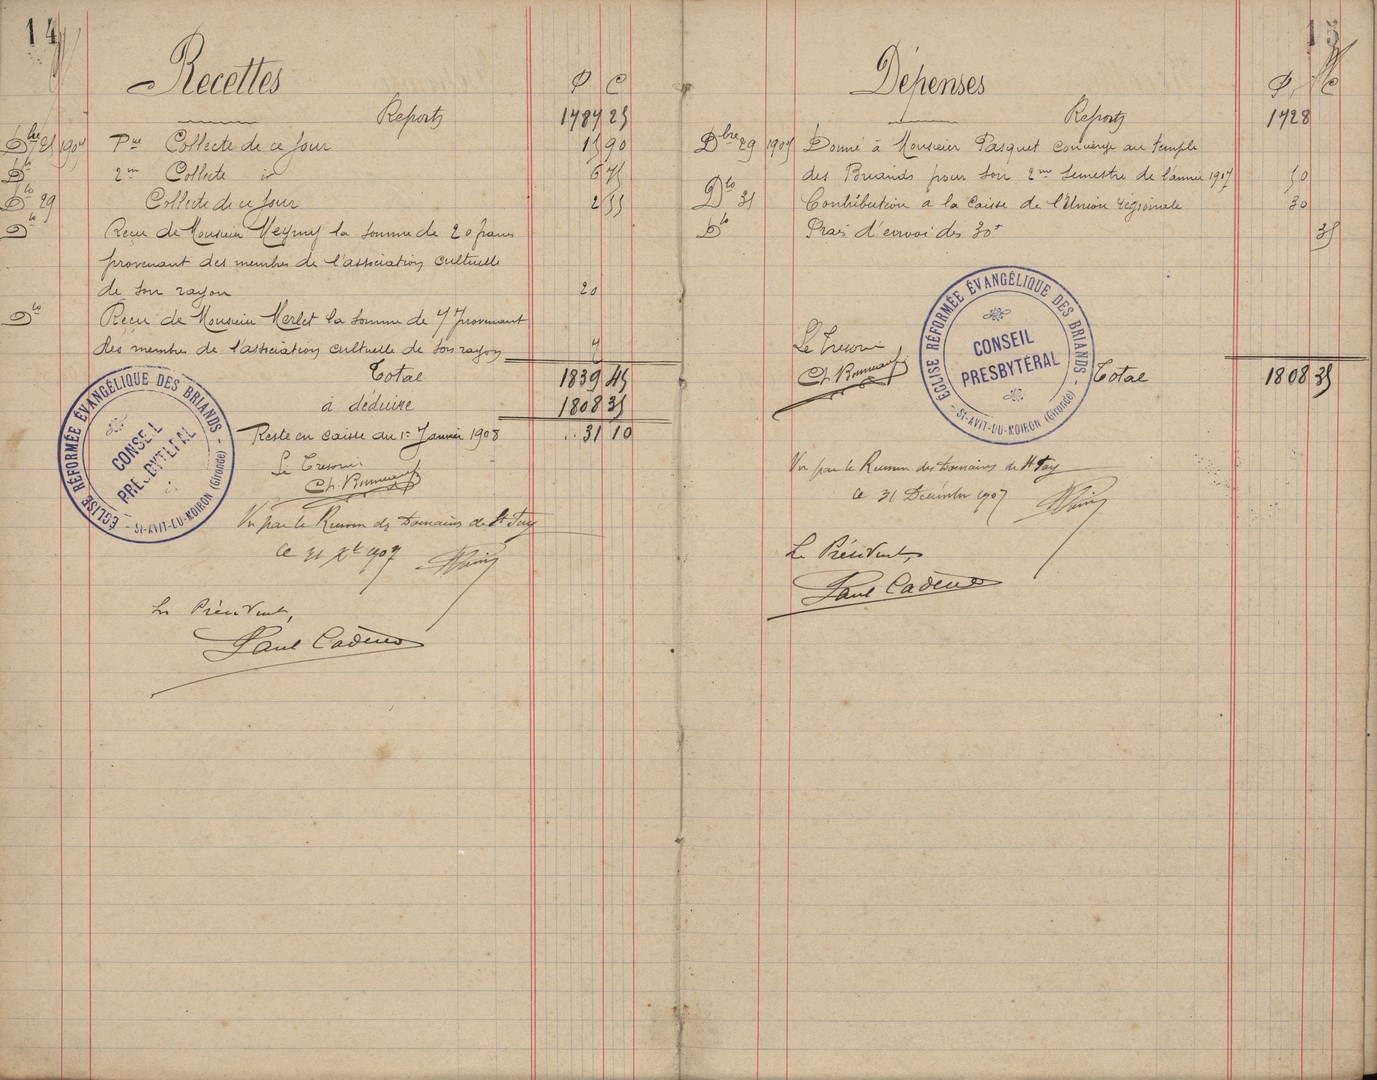 14
Recettes
F C
Reports 1787 25
Dbre 25 1907 Pre Collecte de ce Jour 15 90
Dto 2me Collecte io 6 75
Dto 29 Collecte de ce Jour 2 55
Dto Reçu de Monsieur Meymy la somme de 20 francs
provenant des membres de l'association cultuelle
de son rayon 20
Dto Reçu de Monsieur Merlet la somme de 7 f provenant
des membres de l'association cultuelle de son rayon 7
Total 1839 45
à déduire 1808 35
Reste en caisse au 1er Janvier 1908 31 10
Le Tresorier
Vu par le Receveur des Domaines de Ste Foy
ce 31 Xbre 1907
Le Président,
Paul Cadène
ÉGLISE RÉFORMÉE ÉVANGÉLIQUE DES BRIANDS
ST-AVIT-DU-MOIRON (Gironde)
CONSEIL
PRESBYTÉRAL
15
Dépenses
F C
Reports 1728
Dbre 29 1907 Donné à Monsieur Pasquet concierge au temple
des Briands pour son 2me semestre de l'année 1907 50
Dto 31 Contribution a la caisse de l'Union régionale 30
Dto Frais d'envoi des 30f 35
Le Tresorier
Total 1808 35
ÉGLISE RÉFORMÉE ÉVANGÉLIQUE DES BRIANDS
ST-AVIT-DU-MOIRON (Gironde)
CONSEIL
PRESBYTÉRAL
Vu par le Receveur des Domaines de Ste Foy
ce 31 Décembre 1907
Le Président,
Paul Cadène